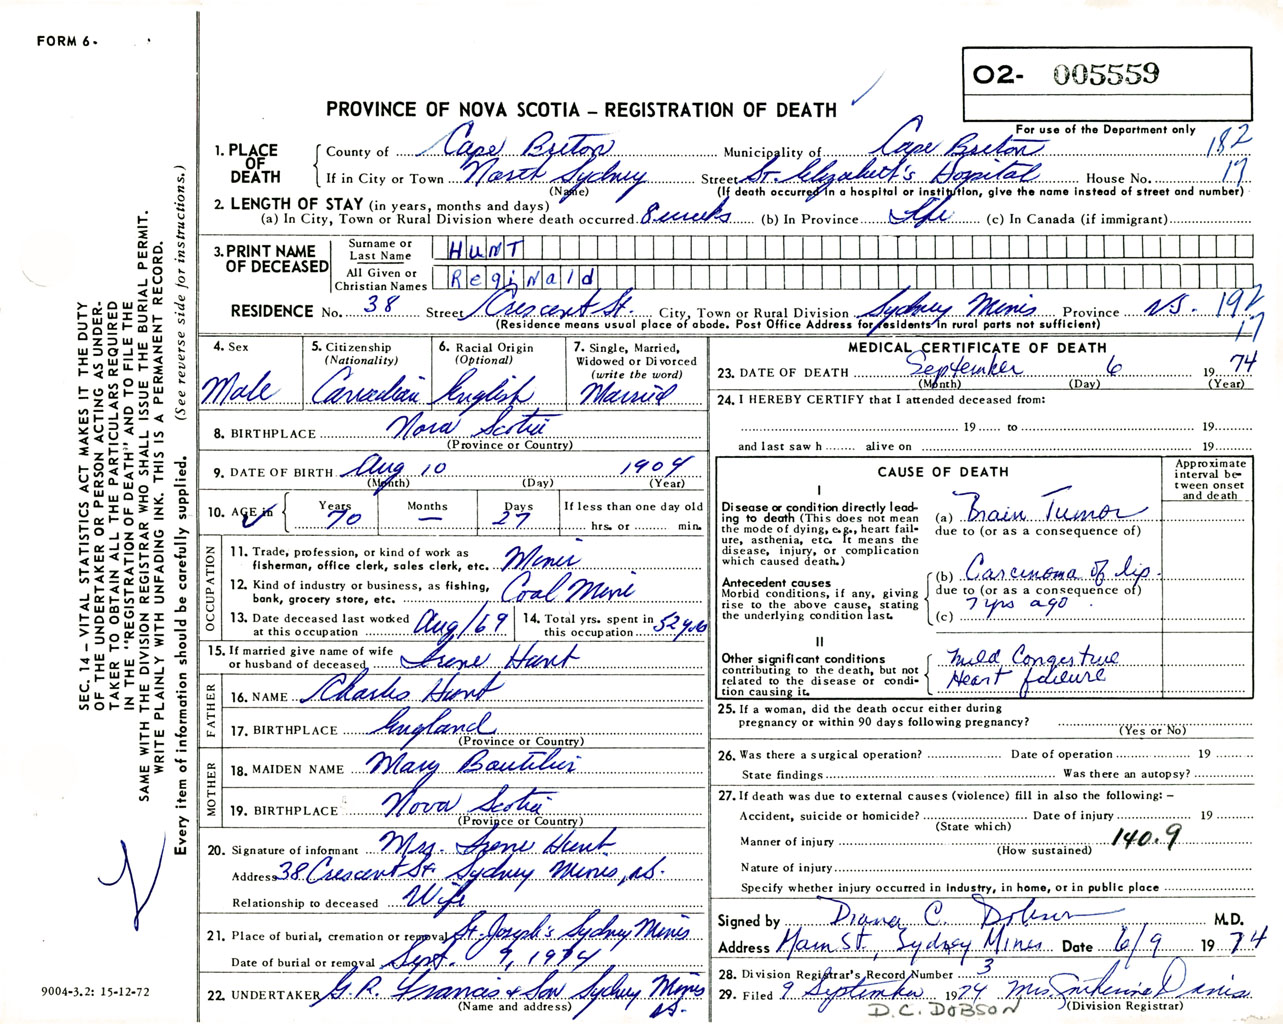 FORM 6-
O2- 005559
PROVINCE OF NOVA SCOTIA – REGISTRATION OF DEATH
For use of the Department only
182
17
1. PLACE OF DEATH
County of Cape Breton Municipality of Cape Breton
If in City or Town North Sydney Street St. Elizabeth's Hospital House No.
(Name) (If death occurred in a hospital or institution, give the name instead of street and number)
2. LENGTH OF STAY (in years, months and days)
(a) In City, Town or Rural Division where death occurred 8 weeks (b) In Province Life (c) In Canada (if immigrant)
3. PRINT NAME OF DECEASED
Surname or Last Name HUNT
All Given or Christian Names Reginald
RESIDENCE No. 38 Street Crescent St. City, Town or Rural Division Sydney Mines Province N.S. 192
17
(Residence means usual place of abode. Post Office Address for residents in rural parts not sufficient)
4. Sex
Male
5. Citizenship
(Nationality)
Canadian
6. Racial Origin
(Optional)
English
7. Single, Married,
Widowed or Divorced
(write the word)
Married
8. BIRTHPLACE Nova Scotia
(Province or Country)
9. DATE OF BIRTH Aug 10 1904
(Month) (Day) (Year)
10. AGE in
Years Months Days If less than one day old
70 — 27 hrs. or min.
OCCUPATION
11. Trade, profession, or kind of work as
fisherman, office clerk, sales clerk, etc. Miner
12. Kind of industry or business, as fishing,
bank, grocery store, etc. Coal Mine
13. Date deceased last worked
at this occupation Aug/69
14. Total yrs. spent in
this occupation 52 yrs
15. If married give name of wife
or husband of deceased Irene Hunt
FATHER
16. NAME Charles Hunt
17. BIRTHPLACE England
(Province or Country)
MOTHER
18. MAIDEN NAME Mary Boutilier
19. BIRTHPLACE Nova Scotia
(Province or Country)
20. Signature of informant Mrs. Irene Hunt
Address 38 Crescent St. Sydney Mines, N.S.
Relationship to deceased Wife
21. Place of burial, cremation or removal St. Joseph's Sydney Mines
Date of burial or removal Sept. 9, 1974
22. UNDERTAKER G. R. Francis & Son Sydney Mines
N.S.
(Name and address)
MEDICAL CERTIFICATE OF DEATH
23. DATE OF DEATH September 6 1974
(Month) (Day) (Year)
24. I HEREBY CERTIFY that I attended deceased from:
19 to 19
and last saw h alive on 19
CAUSE OF DEATH
Approximate
interval be-
tween onset
and death
I
Disease or condition directly lead-
ing to death (This does not mean
the mode of dying, e.g., heart fail-
ure, asthenia, etc. It means the
disease, injury, or complication
which caused death.)
(a) Brain Tumor
due to (or as a consequence of)
Antecedent causes
Morbid conditions, if any, giving
rise to the above cause, stating
the underlying condition last.
(b) Carcinoma of lip.
due to (or as a consequence of)
7 yrs ago.
(c)
II
Other significant conditions
contributing to the death, but not
related to the disease or condi-
tion causing it.
Mild Congestive
Heart failure
25. If a woman, did the death occur either during
pregnancy or within 90 days following pregnancy?
(Yes or No)
26. Was there a surgical operation? Date of operation 19
State findings Was there an autopsy?
27. If death was due to external causes (violence) fill in also the following: –
Accident, suicide or homicide? Date of injury 19
(State which)
Manner of injury 140.9
(How sustained)
Nature of injury
Specify whether injury occurred in industry, in home, or in public place
Signed by Diana C. Dobson M.D.
Address Main St., Sydney Mines Date 6/9 1974
28. Division Registrar's Record Number 3
29. Filed 9 September 1974 Mrs Davis
(Division Registrar)
D.C. DOBSON
SEC. 14 – VITAL STATISTICS ACT MAKES IT THE DUTY
OF THE UNDERTAKER OR PERSON ACTING AS UNDER-
TAKER TO OBTAIN ALL THE PARTICULARS REQUIRED
IN THE "REGISTRATION OF DEATH" AND TO FILE THE
SAME WITH THE DIVISION REGISTRAR WHO SHALL ISSUE THE BURIAL PERMIT.
WRITE PLAINLY WITH UNFADING INK. THIS IS A PERMANENT RECORD.
Every item of information should be carefully supplied. (See reverse side for instructions.)
9004-3.2: 15-12-72